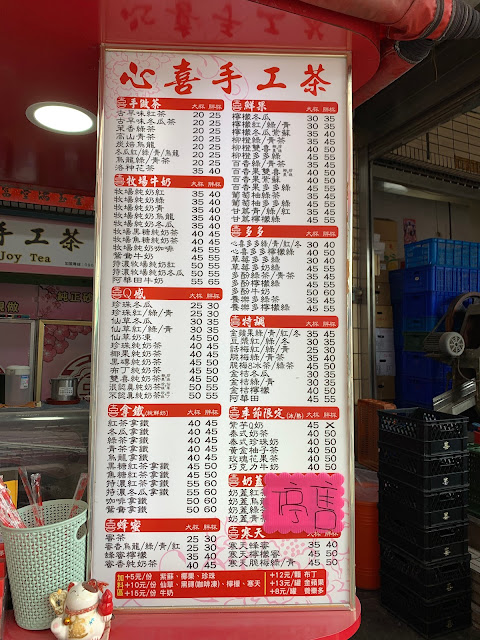 心喜手工茶
手做茶 大杯 胖杯
古早味紅茶 20 25
古早味冬瓜茶 20 25
茉香綠茶 20 25
高山青茶 20 25
炭焙烏龍 20 25
冬瓜紅/綠/青/烏龍 20 25
烏龍綠/青茶 20 25
洛神花茶 35 40
牧場牛奶 大杯 胖杯
牧場純奶紅 35 40
牧場純奶綠 35 40
牧場純奶青 35 40
牧場純奶烏龍 35 40
牧場純奶冬瓜 35 40
牧場黑糖純奶茶 40 45
牧場焦糖純奶茶 40 45
牧場純奶咖啡 45 55
鴛鴦牛奶 45 55
特濃牧場純奶茶 50 55
特濃牧場純奶冬瓜 50 55
阿華田牛奶 55 65
Q感 大杯 胖杯
珍珠冬瓜 25 30
珍珠紅/綠/青 25 30
仙草冬瓜 25 30
仙草紅/綠/青 25 30
仙草奶凍 45 50
珍珠純奶茶 40 45
椰果純奶茶 40 45
黑磚純奶茶 45 50
布丁純奶茶 45 50
雙喜純奶茶 45 50
很認真純奶茶 45 50
不認真純奶茶 50 55
拿鐵(純鮮奶) 大杯 胖杯
紅茶拿鐵 40 45
冬瓜拿鐵 40 45
綠茶拿鐵 40 45
青茶拿鐵 40 45
烏龍拿鐵 40 45
黑糖紅茶拿鐵 45 50
焦糖紅茶拿鐵 45 50
特濃紅茶拿鐵 50 60
特濃冬瓜拿鐵 50 60
咖啡拿鐵 50 60
鴛鴦拿鐵 50 60
蜂蜜 大杯 胖杯
蜜茶 25 30
蜜香烏龍/綠/青/紅 25 30
蜂蜜檸檬 40 50
蜜香純奶茶 40 45
鮮果 大杯 胖杯
檸檬冬瓜 30 35
檸檬紅/綠/青 30 35
檸檬冬瓜紫蘇 30 40
柳橙綠/青茶 30 40
柳橙雙喜 40 50
柳橙多多綠 45 55
百香綠/青茶 35 45
百香果雙喜 40 50
百香果紫蘇 40 50
百香果多多綠 45 55
葡萄柚綠茶 45 55
葡萄柚多多綠 45 55
甘蔗青/綠/紅 35 45
甘蔗檸檬綠 45 55
多多 大杯 胖杯
心喜多多綠/青/紅/冬 30 40
心喜多多檸檬綠 40 50
草莓多多綠 30 40
草莓多奶綠 45 55
多酚綠茶/青茶 35 45
多酚檸檬綠 45 55
多酚牛奶 50 60
養樂多綠 35 45
養樂多檸檬綠 45 55
特調 大杯 胖杯
金蘋果綠/青/紅/冬 35 45
豆漿紅/綠/冬 30 35
話梅紅/綠/青 25 30
脆梅綠/青茶 35 40
脆梅8冰茶/綠茶 45 50
金桔冬瓜 30 35
金桔綠/青 30 35
金桔檸檬 40 50
阿華田 45 55
季節限定(冰/熱) 大杯 胖杯
紫芋Q奶 45 ✕
泰式奶茶 40 50
泰式珍珠奶 40 50
黃金柚子茶 40 50
玫瑰花果茶 40 50
巧克力牛奶 40 50
奶蓋
奶蓋紅茶
奶蓋
奶蓋綠
奶蓋青
停售
寒天 大杯 胖杯
寒天 35 40
寒天蜂蜜 35 40
寒天檸檬蜂蜜 45 50
寒天脆梅綠/青 45 50
加料區
+5元/份 紫蘇、椰果、珍珠
+10元/份 仙草、黑磚(咖啡凍)、檸檬、寒天
+15元/份 牛奶
+12元/顆 布丁
+13元/罐 金蘋果
+8元/罐 養樂多
手工茶
Joy Tea